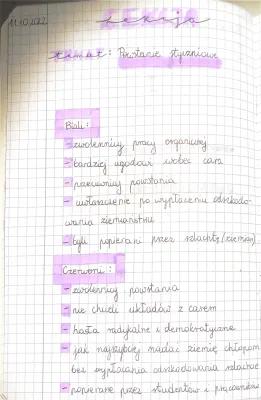 11.10.2022
Lekcja
temat: Powstanie styczniowe
Biali:
- zwolennicy pracy organicznej
- bardziej ugodowi wobec cara
- przeciwnicy powstania
- uwłaszczenie po wypłaceniu odszkodo-
wania ziemiaństwu
- byli popierani przez szlachtę (ziemian).
Czerwoni:
- zwolennicy powstania
- nie chcieli układów z carem
- hasła radykalne i demokratyczne
- jak najszybciej nadać ziemię chłopom
bez wypłacania odszkodowania szlachcie
- popierane przez studentów i pracowników